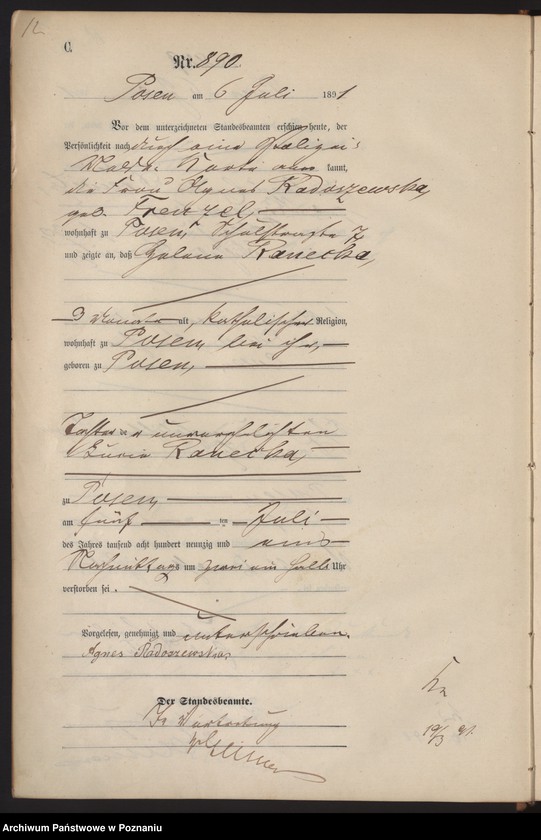 12
C.
Nr. 890.
Posen am 6 Juli 1891
Vor dem unterzeichneten Standesbeamten erschien heute, der
Persönlichkeit nach durch eine Polizei-
Melde-Karte aner kannt,
die Frau Agnes Radoszewska,
geb. Frenzel
wohnhaft zu Posen, Schulstraße 7
und zeigte an, daß Helena Ranecka,
3 Monate alt, katholischer Religion,
wohnhaft zu Posen, bei ihr,
geboren zu Posen,
Tochter der unverehelichten
Ranecka,
zu Posen,
am fünf ten Juli
des Jahres tausend acht hundert neunzig und eins
Nachmittags um zwei ein halb Uhr
verstorben sei.
Vorgelesen, genehmigt und unterschrieben.
Agnes Radoszewska
Der Standesbeamte.
In Vertretung
19/3 91.
Archiwum Państwowe w Poznaniu